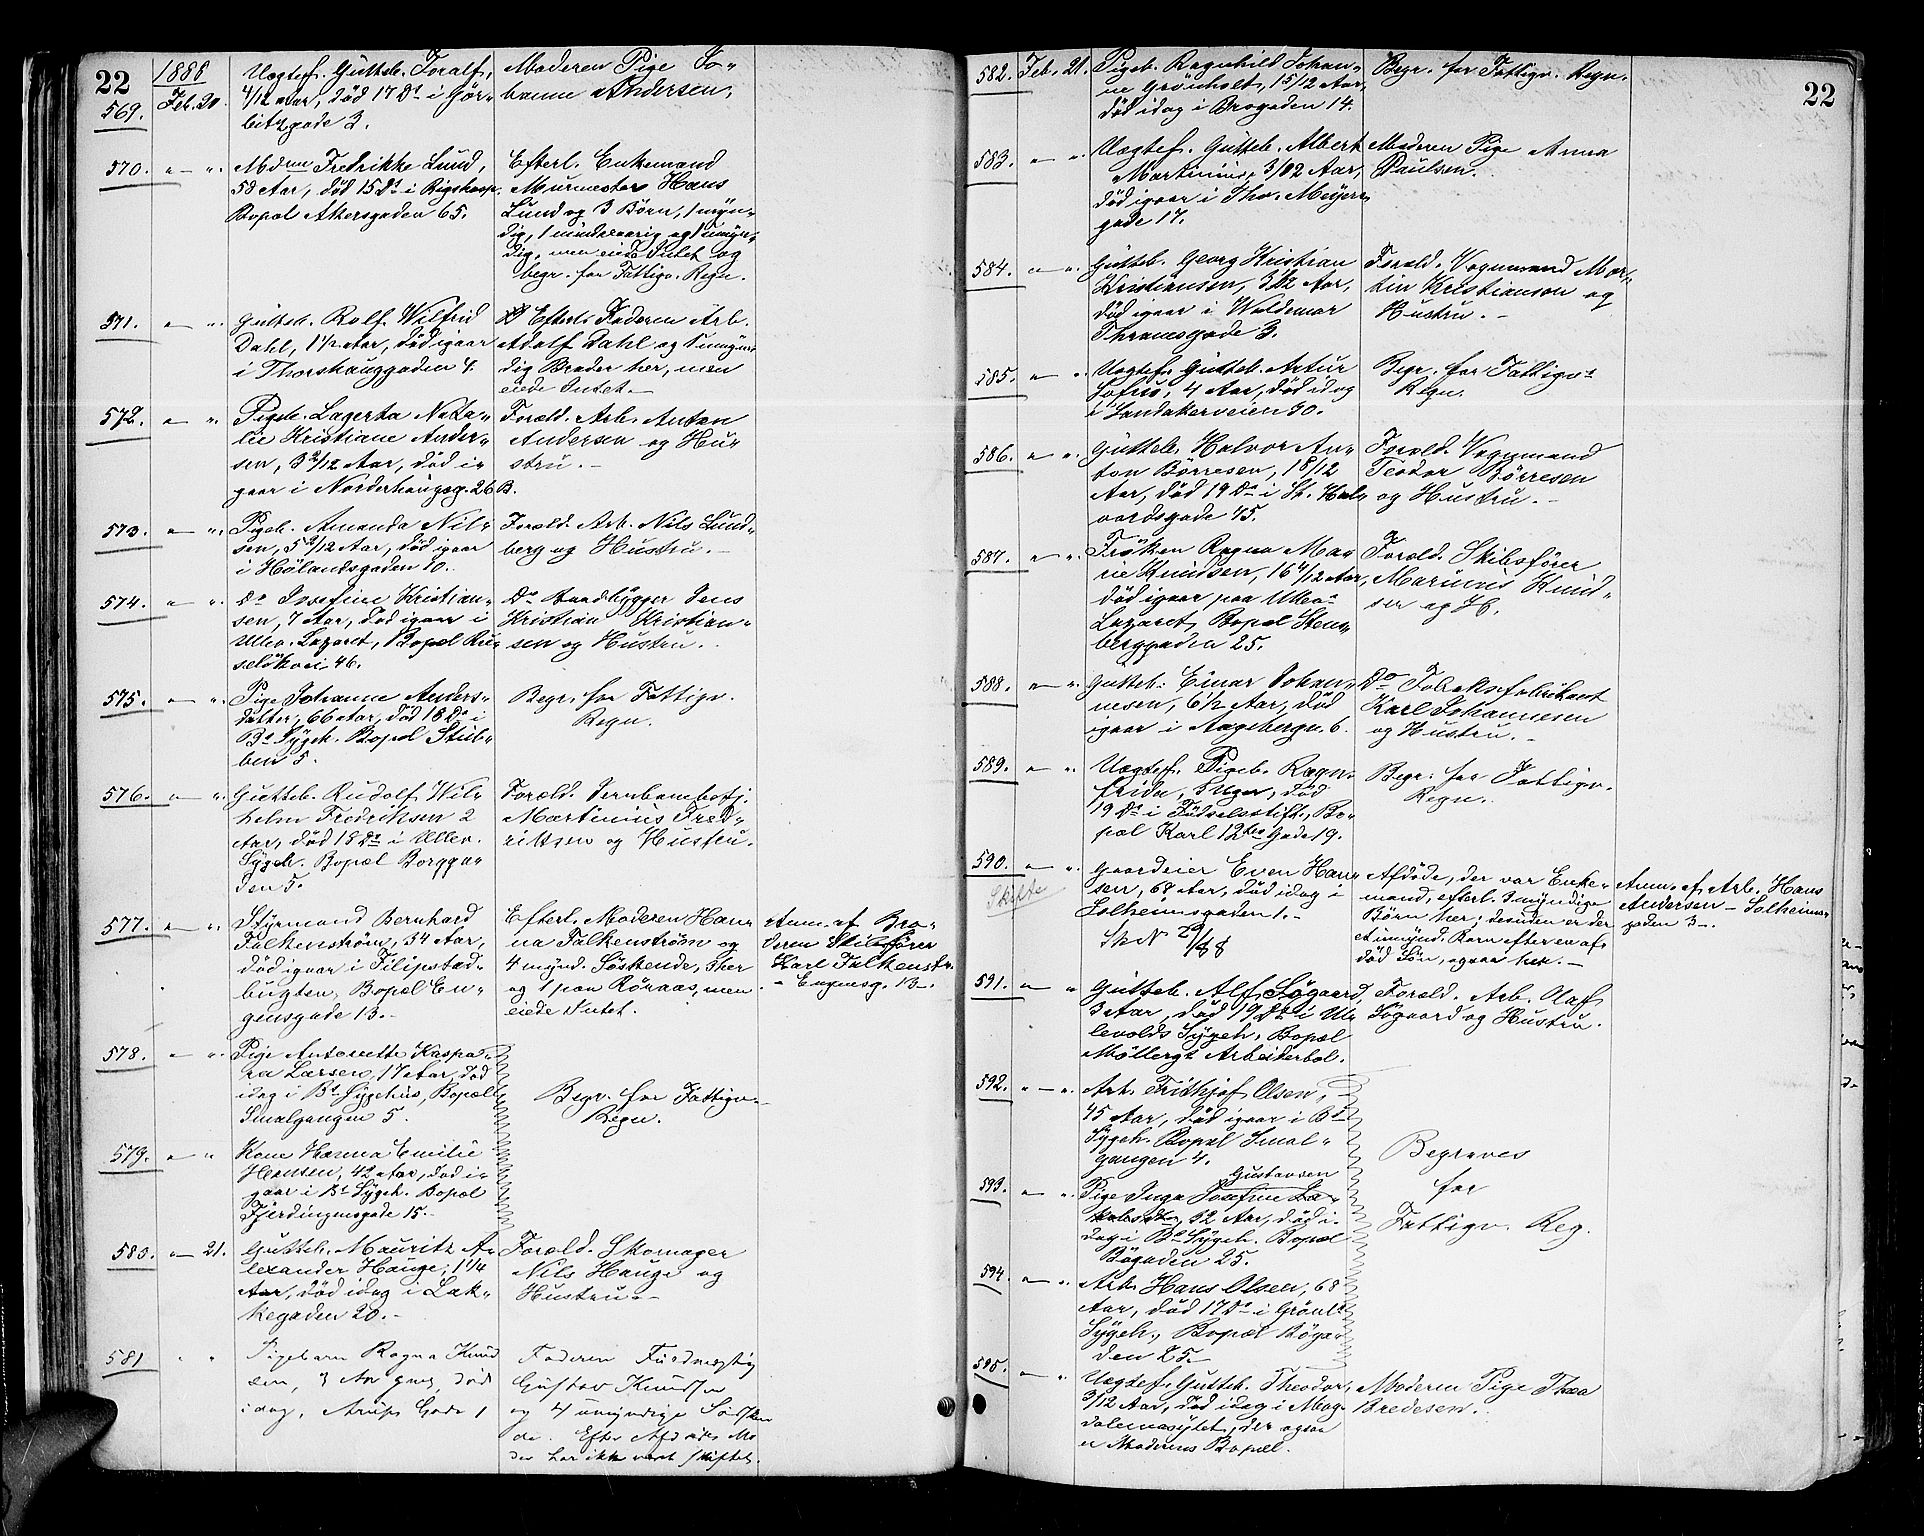 22
1888
569. Feb. 20. Uægtef. Gutteb. Toralf,
4/12 Aar, död 17 Ds i Gör-
bitzgade 3.
Moderen Pige Jo-
hanne Andersen,
570. " — " Mdm Fredrikke Lund,
58 Aar, död 15 Ds i Rigshosp.
Bopæl Akersgaden 65.
Efterl. Enkemand
Murmester Hans
Lund og 3 Börn, 1 myn-
dig, 1 mindreaarig og 1 umyn-
dig, men eiede Intet og
begr. for Fattigv. Regn.
571. " — " Gutteb. Rolf Wilfrid
Dahl, 1 1/2 Aar, död igaar
i Thorshauggaden 4.
Efterl. Faderen Arb.
Adolf Dahl og 1 umyn-
dig Broder her, men
eiede Intet. —
572. " — " Pigeb. Lagerta Nata-
lie Kristiane Ander-
sen, 3 2/12 Aar, död i-
gaar i Norderhougsg. 26 B.
Foræld. Arb. Anton
Andersen og Hu-
stru. —
573. " — " Pigeb. Amanda Nil-
sen, 5 2/12 Aar, död igaar
i Hølandsgaden 10.
Foræld. Arb. Nils Lund-
berg og Hustru. —
574. " — " Do Josefine Kristian-
sen, 7 Aar, död igaar i
Ullev. Lazaret, Bopæl Ru-
selökvei 46.
Do Baadbygger Jens
Kristian Kristian-
sen og Hustru.
575. " — " Pige Johanne Anders-
datter, 66 Aar, död 18 Ds i
Bs Sygeh. Bopæl Stub-
ben 5.
Begr. for Fattigv.
Regn.
576. " — " Gutteb. Rudolf Wil-
helm Fredriksen 2
Aar, död 18 Ds i Ullev.
Sygeh. Bopæl Borgga-
den 5.
Foræld. Jernbanebetj.
Martinius Fred-
riksen og Hustru.
577. " — " Styrmand Bernhard
Falkenstrøm, 34 Aar,
död igaar i Filipstad-
bugten, Bopæl Eu-
gensgade 13. —
Efterl. Moderen Han-
na Falkenstrøm og
4 mynd. Søskende, 3 her
og 1 paa Røraas, men
eiede Intet.
Anm. af Bro-
deren Skibsfører
Karl Falkenstr.
— Eugensg. 13 —.
578. " — " Pige Antonette Kaspa-
ra Larsen, 17 Aar, död
idag i Bs Sygehus, Bopæl
Smalgangen 5.
Begr. for Fattigv.
Regn.
579. " — " Kone Hanna Emilie
Hansen, 42 Aar, död i-
gaar i Bs Sygeh. Bopæl
Fjerdingensgade 15. —
580. " — 21. Gutteb. Mauritz A-
lexander Hauge, 1 1/4
Aar, död idag i Lak-
kegaden 20. —
Foræld. Skomager
Nils Hauge og
Hustru. —
581 " " Pigebarn Ragna Knud
sen, 3 Aar gml, död
idag, Arups Gade 1
Faderen Fuldmægtig
Gustav Knudsen
og 4 umyndige Södsken
de. Efter Afdödes Mo
der har ikke været skiftet.
22
582. Feb. 21. Pigeb. Ragnhild Johan-
ne Grönholt, 15/12 Aar,
död idag i Brogaden 14.
Begr. for Fattigv. Regn.
583. " — " Uægtef. Gutteb. Albert
Martinius, 3/12 Aar,
död igaar i Thv. Meyers
gade 17.
Moderen Pige Anna
Paulsen.
584. " — " Gutteb. Georg Kristian
Kristiansen, 3 1/2 Aar,
död igaar i Waldemar
Thranesgade 3.
Foræld. Vognmand Mar-
tin Kristiansen og
Hustru. —
585. " — " Uægtef. Gutteb. Artur
Lofus, 4 Aar, död idag
i Sandakerveien 50.
Begr. for Fattigv.
Regn.
586. " — " Gutteb. Halvor An-
ton Börresen, 18/12
Aar, död 19 Ds i St. Hal-
vardsgade 45.
Foræld. Vognmand
Teodor Börresen
og Hustru. —
587. " — " Fröken Ragna Ma-
rie Knudsen, 16 4/12 Aar,
död igaar paa Ullev.
Lazaret, Bopæl Sten-
berggaden 25.
Foræld. Skibsförer
Marinius Knud-
sen og H.
588. " — " Gutteb. Einar Johan-
nesen, 6 1/2 Aar, död
igaar i Aagebergv. 6.
Do Tobaksfabrikant
Karl Johannesen
og Hustru. —
589. " — " Uægtef. Pigeb. Ragn-
frida, 3 Uger, död
19 Ds i Födselsstift., Bo-
pæl Karl 12tes Gade 19.
Begr. for Fattigv.
Regn.
590. " — " Gaardeier Even Han-
sen, 68 Aar, död idag i
Solheimsgaden 1. —
Skifte
Afdöde, der var Enke-
mand, efterl. 3 myndige
Börn her; desuden er der
et umynd. Barn efter en af-
död Sön, ogsaa her. —
Anm. af Arb. Hans
Andersen — Solheims-
gaden 3 —.
591. " — " Gutteb. Alf Sögaard,
3 Aar, död 19 Ds i Ul-
levolds Sygeh., Bopæl
Möllergs Arbeiderbol.
Foræld. Arb. Olaf
Sögaard og Hustru.
592. " — " Arb. Fritjof Olsen,
45 Aar, död igaar i Bs
Sygeh. Bopæl Smal-
gangen 4.
Begraves
for
Fattigv. Reg.
593. " — " Gustavsen
Pige Inga Josefine
32 Aar, död i-
dag i Bs Sygeh. Bopæl
Bögaden 25.
594. " — " Arb. Hans Olsen, 68
Aar, död 17 Ds i Grönl.
Sygeh., Bopæl Böga-
den 25. —
595. " — " Uægtef. Gutteb. Theodor,
3/12 Aar, död idag i Mag-
dalenasylet, der ogsaa
er Moderens Bopæl.
Moderen Pige Thea
Bredesen.